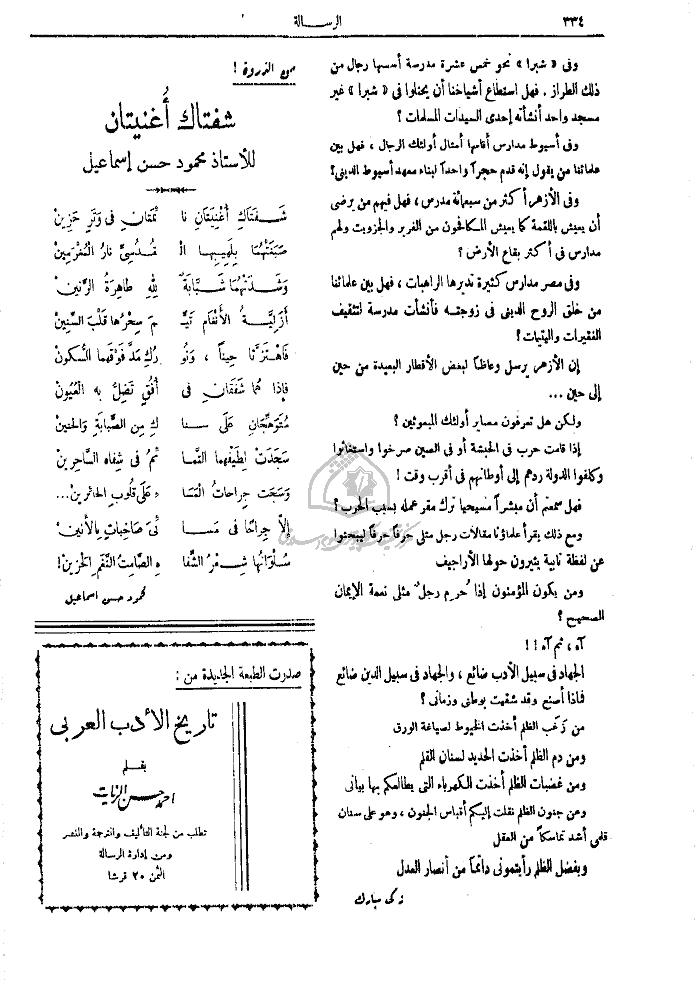 ٣٣٤
الرسالة
وفى « شبرا » نحو خمس عشرة مدرسة أسسها رجال من
ذلك الطراز . فهل استطاع أشياخنا أن يحتلوا فى « شبرا » غير
مسجد واحد أنشأته إحدى السيدات المسلمات ؟
وفى أسيوط مدارس أقامها أمثال أولئك الرجال ، فهل بين
علمائنا من يقول إنه قدم حجراً واحداً لبناء معهد أسيوط الدينى؟
وفى الأزهر أكثر من سبعمائة مدرس ، فهل فيهم من يرضى
أن يعيش باللقمة كما يعيش المكافحون من الفرير والجزويت ولهم
مدارس فى أكثر بقاع الأرض ؟
وفى مصر مدارس كثيرة تديرها الراهبات ، فهل بين علمائنا
من خلق الروح الدينى فى زوجته فأنشأت مدرسة لتثقيف
الفقيرات واليتيمات ؟
إن الأزهر يرسل وعاظاً لبعض الأقطار البعيدة من حين
إلى حين ...
ولكن هل تعرفون مصاير أولئك المبعوثين ؟
إذا قامت حرب فى الحبشة أو فى الصين صرخوا واستغاثوا
وكلفوا الدولة ردهم إلى أوطانهم فى أقرب وقت !
فهل سمعتم أن مبشراً مسيحياً ترك مقر عمله بسبب الحرب ؟
ومع ذلك يقرأ علماؤنا مقالات رجل مثلى حرفاً حرفاً ليبحثوا
عن لفظة نابية يثيرون حولها الأراجيف
ومن يكون المؤمنون إذا حُرِم رجل مثلى نعمة الإيمان
الصحيح ؟
آه ، ثم آه ! !
الجهاد فى سبيل الأدب ضائع ، والجهاد فى سبيل الدين ضائع
فماذا أصنع وقد شقيت بوطنى وزمانى ؟
من زَغَب الظلم أخذت الخيوط لصياغة الورق
ومن دم الظلم أخذت الحديد لسنان القلم
ومن غضبات الظلم أخذت الكهرباء التى يطالعكم بها بيانى
ومن جنون الظلم نقلت إليكم أقباس الجنون ، وهو على سنان
قلمى أشد تماسكاً من العقل
وبفضل الظلم رأيتمونى دائماً من أنصار العدل
زكى مبارك
من الذروة !
شفتاك أُغنيتان
للأستاذ محمود حسن إسماعيل
شَفَتَاكِ أُغْنِيَتَانِ نَا تَمَتَانِ فى وَتَرٍ حَزِينْ
صَبَغَتْهُمَا بِلَهِيبِهَا الـ قُدْسِىِّ نَارُ الْمُغْرَمِينْ
وَشَدَتْهُمَا شَبَّابَةٌ لِلهِ طَاهِرَةُ الرَّنِينْ
أَزَلِيَّةُ الأَنْغَامِ تَيَّـ ـمَ سِحْرُهَا قَلْبَ السِّنِينْ
فَاهْتَزَّتَا حِيناً ، وَنُو رُكِ مَدَّ فَوْقَهُما السُّكُونْ
فإذا هُما شَفَقَانِ فى أُفُقٍ تَضِلُّ بِهِ الْعُيُونْ
مُتَوَهِّجَانِ عَلَى سنا كِ مِنَ الصَّبَابَةِ وَالْحَنِينْ
سَجَدَتْ لِطَيْفِهِما التَّمَا ئمُ فى شِفاهِ السَّاحِرِينْ
وَسَجَتْ جِراحاتُ الْمَسَا ءِ عَلَى قلوبِ الْحائرِينْ ...
إلاَّ جِرَاحًا فى دَمِـ ـى صَاخِباتٍ بِالأنينْ
سُلْوَانُهَا شِعْرُ الشِّفَا هِ الصَّامِتُ النَّغَمِ الْحَزِينْ !
محمود حسن إسماعيل
صدرت الطبعة الجديدة من :
تاريخ الأدب العربى
بقلم
احمد حسن الزيات
تطلب من لجنة التأليف والترجمة والنشر
ومن إدارة الرسالة
الثمن ٢٠ قرشا